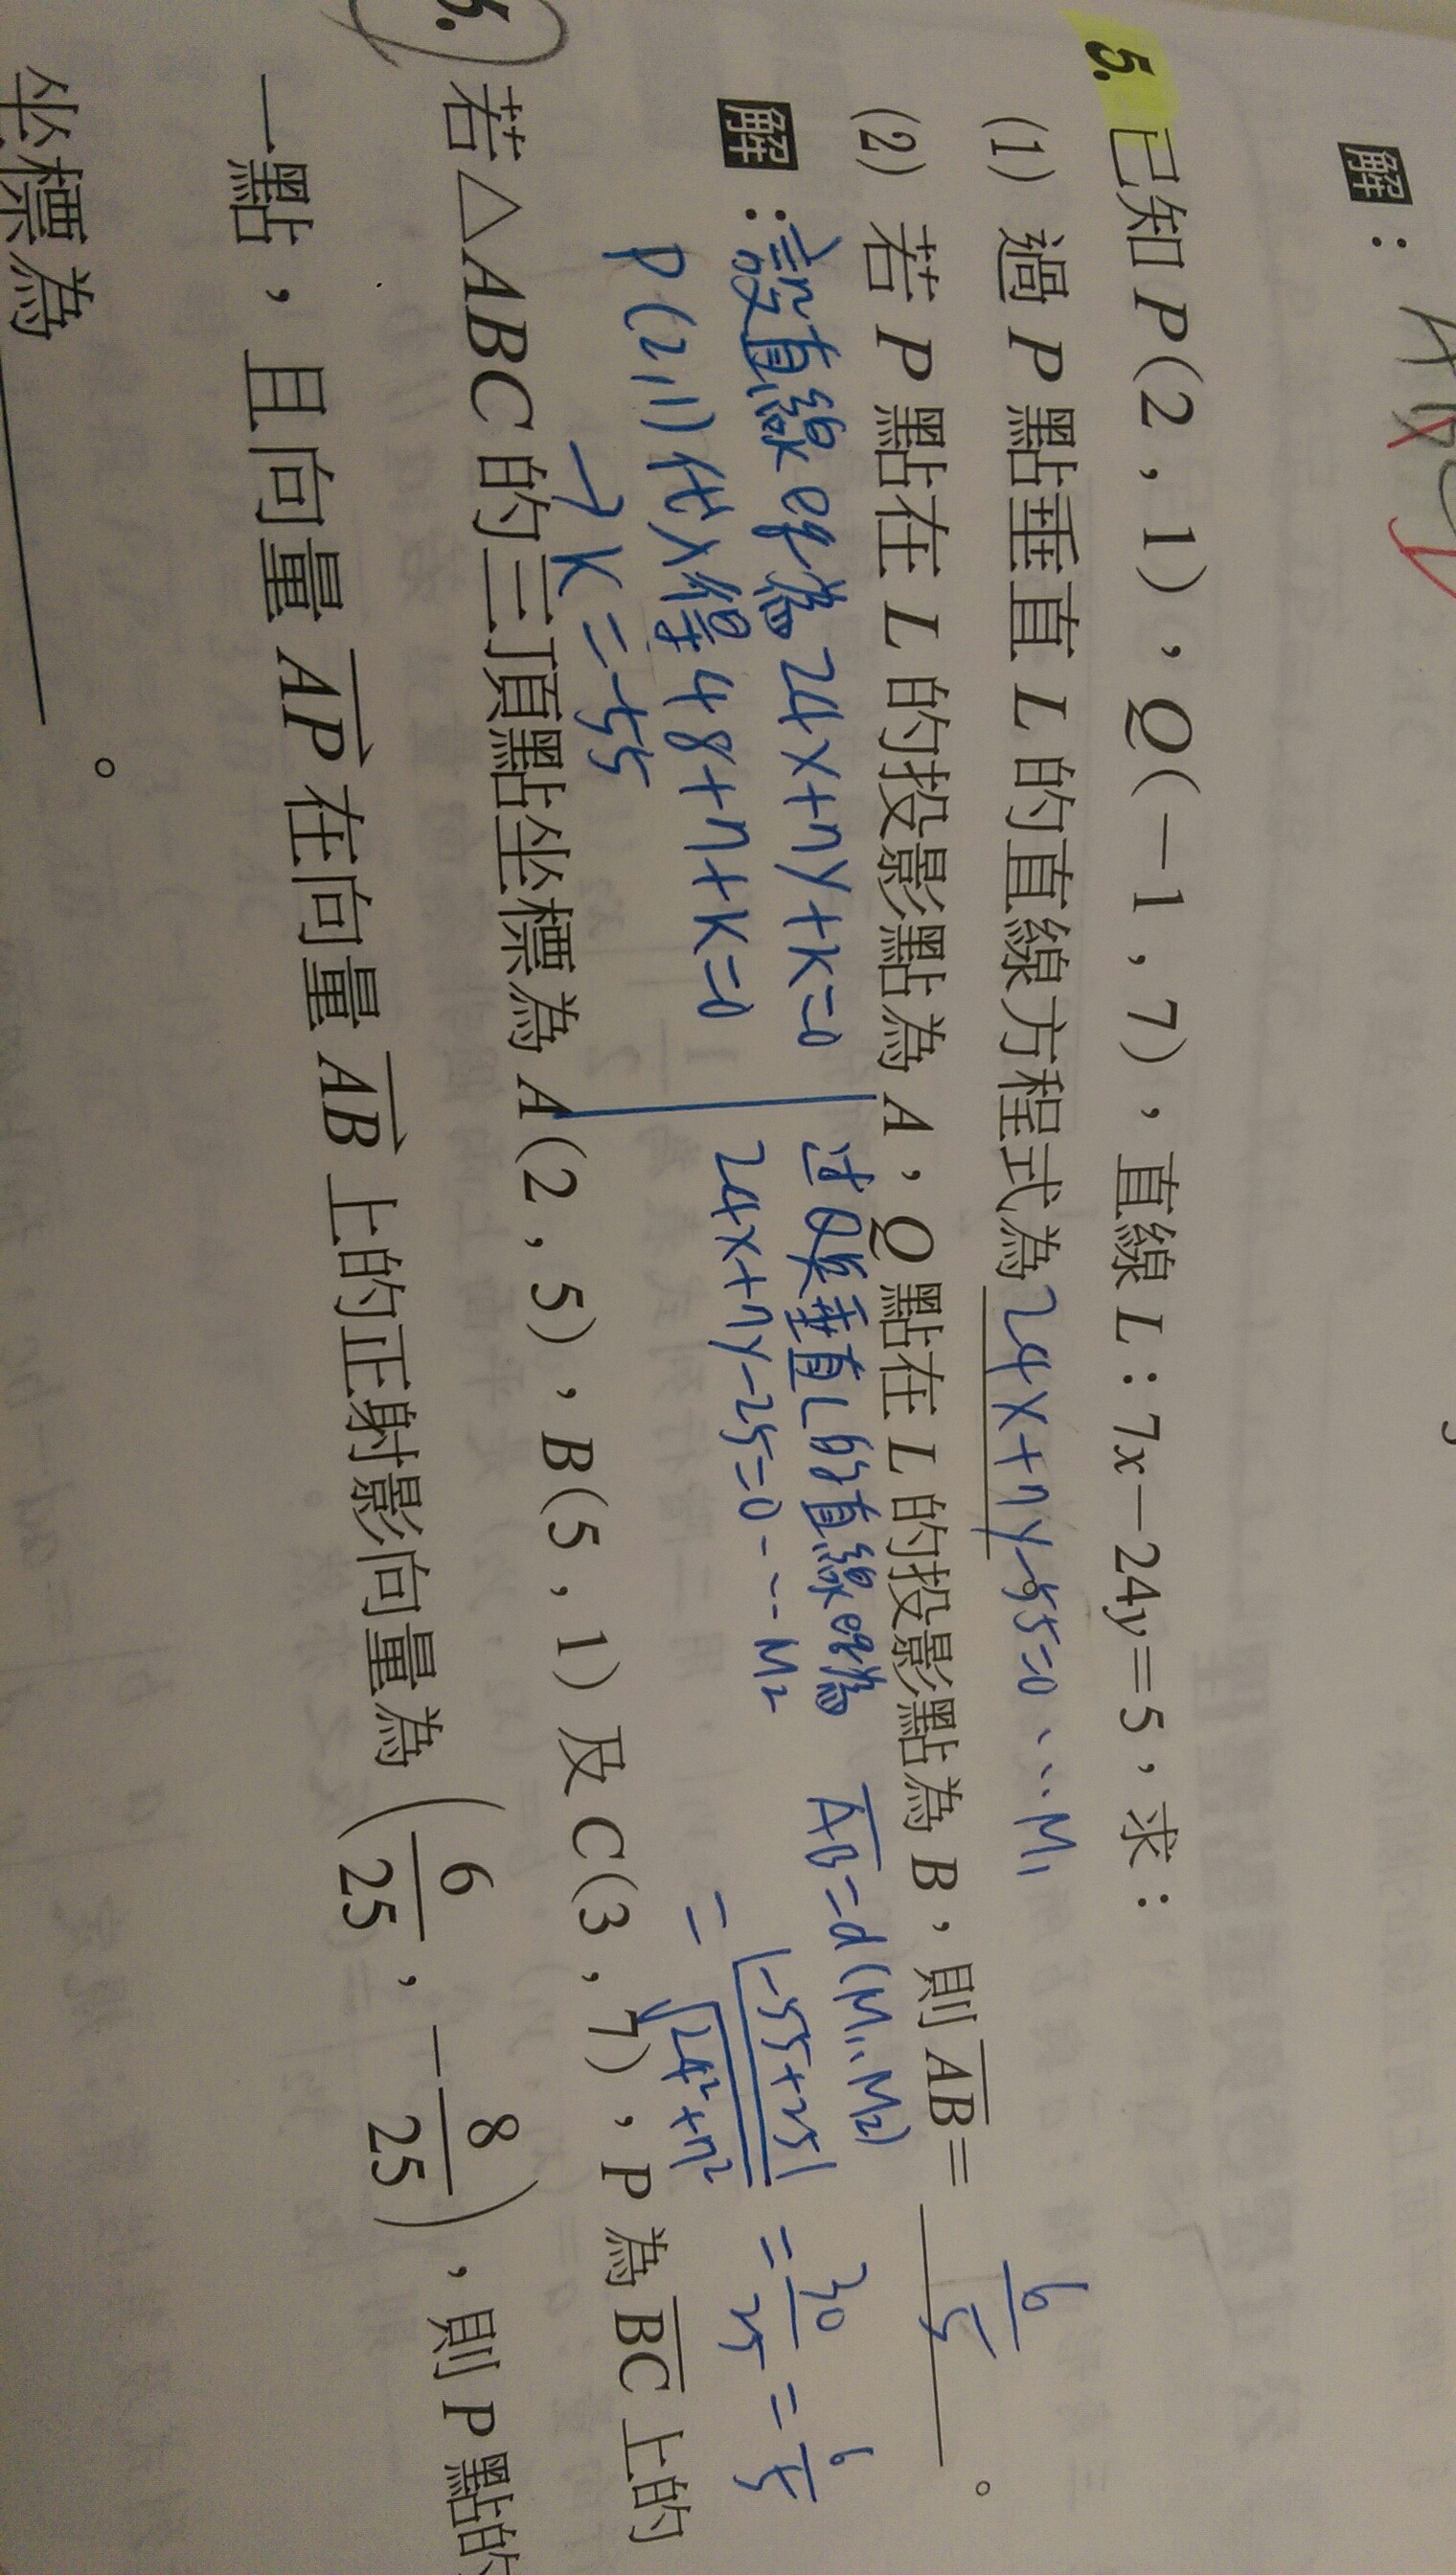 解：
5. 已知 P(2，1)，Q(－1，7)，直線 L：7x－24y＝5，求：
(1) 過 P 點垂直 L 的直線方程式為 24x+7y-55=0 ... M₁
(2) 若 P 點在 L 的投影點為 A，Q 點在 L 的投影點為 B，則 \overline{AB}＝ 6/5 。
解：設直線 為 24x+7y+k=0
P(2,1)代入得 48+7+k=0
→ k=-55
过Q 垂直L的直線 為
24x+7y-25=0 --- M₂
\overline{AB}=d(M₁,M₂)
= |-55+25| / √(24²+7²) = 30/25 = 6/5
6. 若△ABC 的三頂點坐標為 A(2，5)，B(5，1) 及 C(3，7)，P 為 \overline{BC} 上的
一點，且向量 \overrightarrow{AP} 在向量 \overrightarrow{AB} 上的正射影向量為 (6/25，－8/25)，則 P 點的
坐標為 。